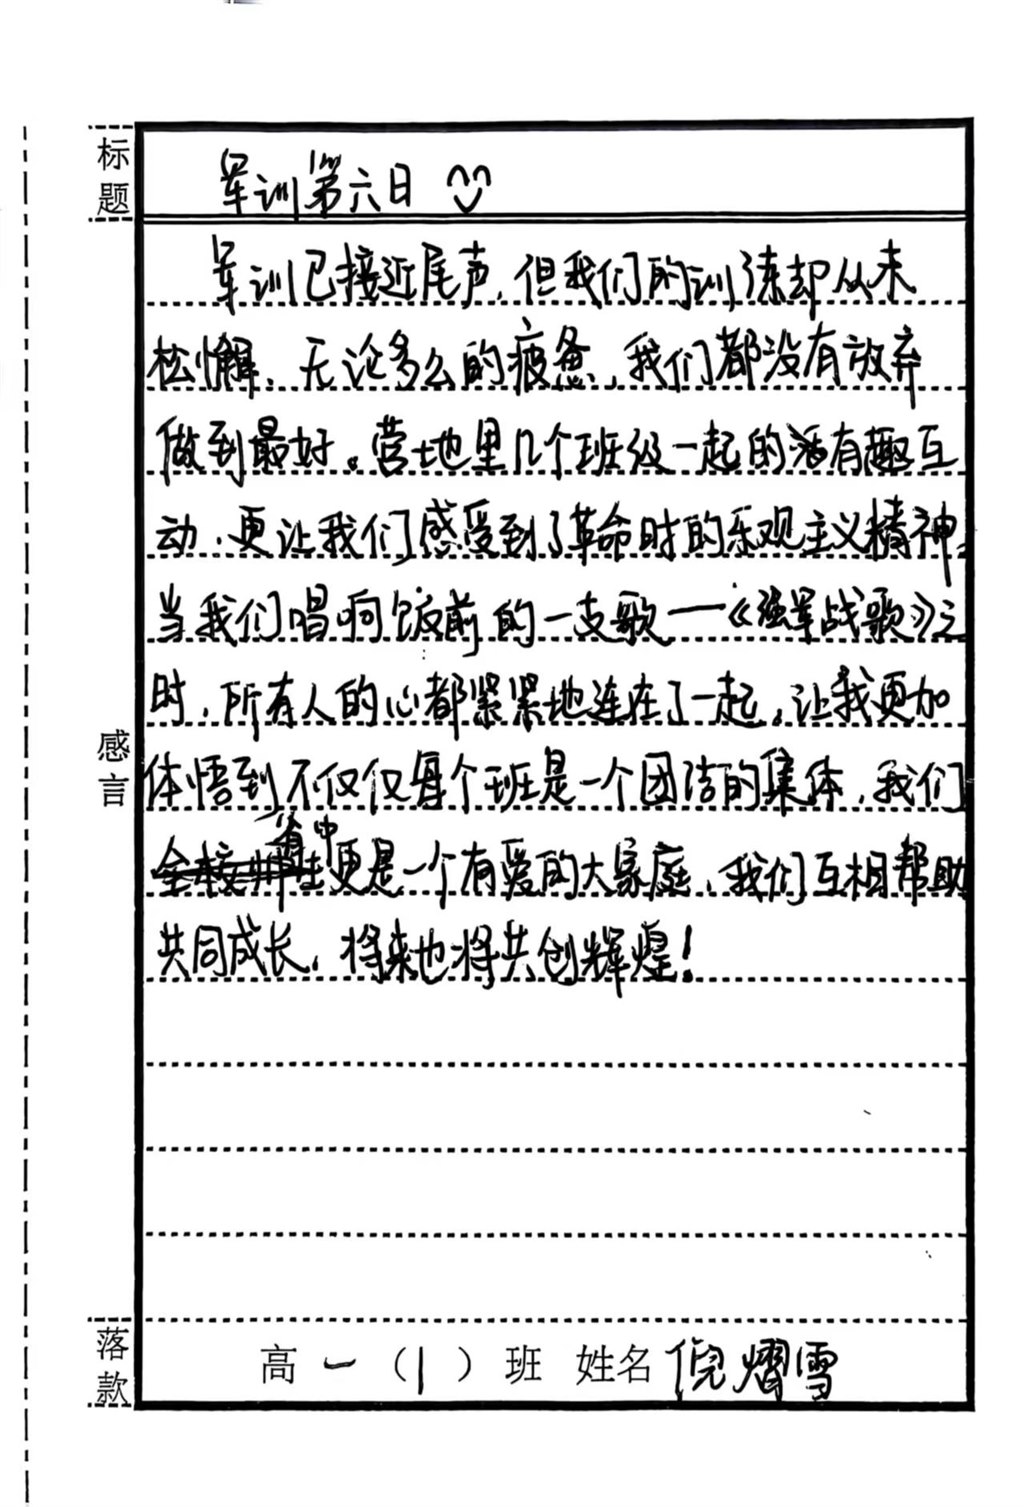 标题
军训第六日
军训已接近尾声，但我们的训练却从未
松懈，无论多么的疲惫，我们都没有放弃
做到最好。营地里几个班级一起的活有趣互
动，更让我们感受到了革命时的乐观主义精神，
当我们唱响饭前的一支歌——《强军战歌》之
时，所有人的心都紧紧地连在了一起，让我更加
感言
体悟到不仅仅每个班是一个团结的集体，我们
省中
全校师生更是一个有爱的大家庭，我们互相帮助
共同成长，将来也将共创辉煌！
落款
高一（1）班 姓名 倪熠雪